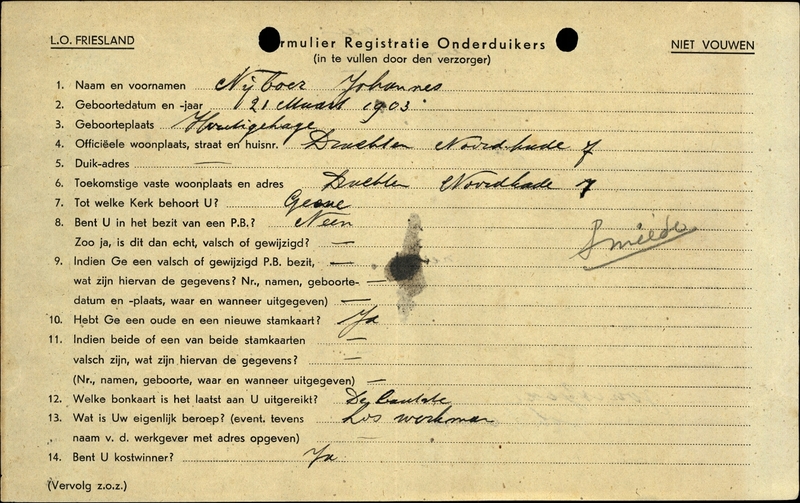 L.O. FRIESLAND
rmulier Registratie Onderduikers
NIET VOUWEN
(in te vullen door den verzorger)
1. Naam en voornamen Nijboer Johannes
2. Geboortedatum en -jaar 21 Maart 1903
3. Geboorteplaats Houtigehage
4. Officiëele woonplaats, straat en huisnr. Drachten Noordkade 7
5. Duik-adres —
6. Toekomstige vaste woonplaats en adres Drachten Noordkade 7
7. Tot welke Kerk behoort U? Geene
8. Bent U in het bezit van een P.B.? Neen
Zoo ja, is dit dan echt, valsch of gewijzigd? —
Smeeds
9. Indien Ge een valsch of gewijzigd P.B. bezit, —
wat zijn hiervan de gegevens? Nr., namen, geboorte- —
datum en -plaats, waar en wanneer uitgegeven) —
10. Hebt Ge een oude en een nieuwe stamkaart? Ja
11. Indien beide of een van beide stamkaarten —
valsch zijn, wat zijn hiervan de gegevens? —
(Nr., namen, geboorte, waar en wanneer uitgegeven) —
12. Welke bonkaart is het laatst aan U uitgereikt? De laatste
13. Wat is Uw eigenlijk beroep? (event. tevens Los werkman
naam v. d. werkgever met adres opgeven)
14. Bent U kostwinner? Ja
(Vervolg z.o.z.)